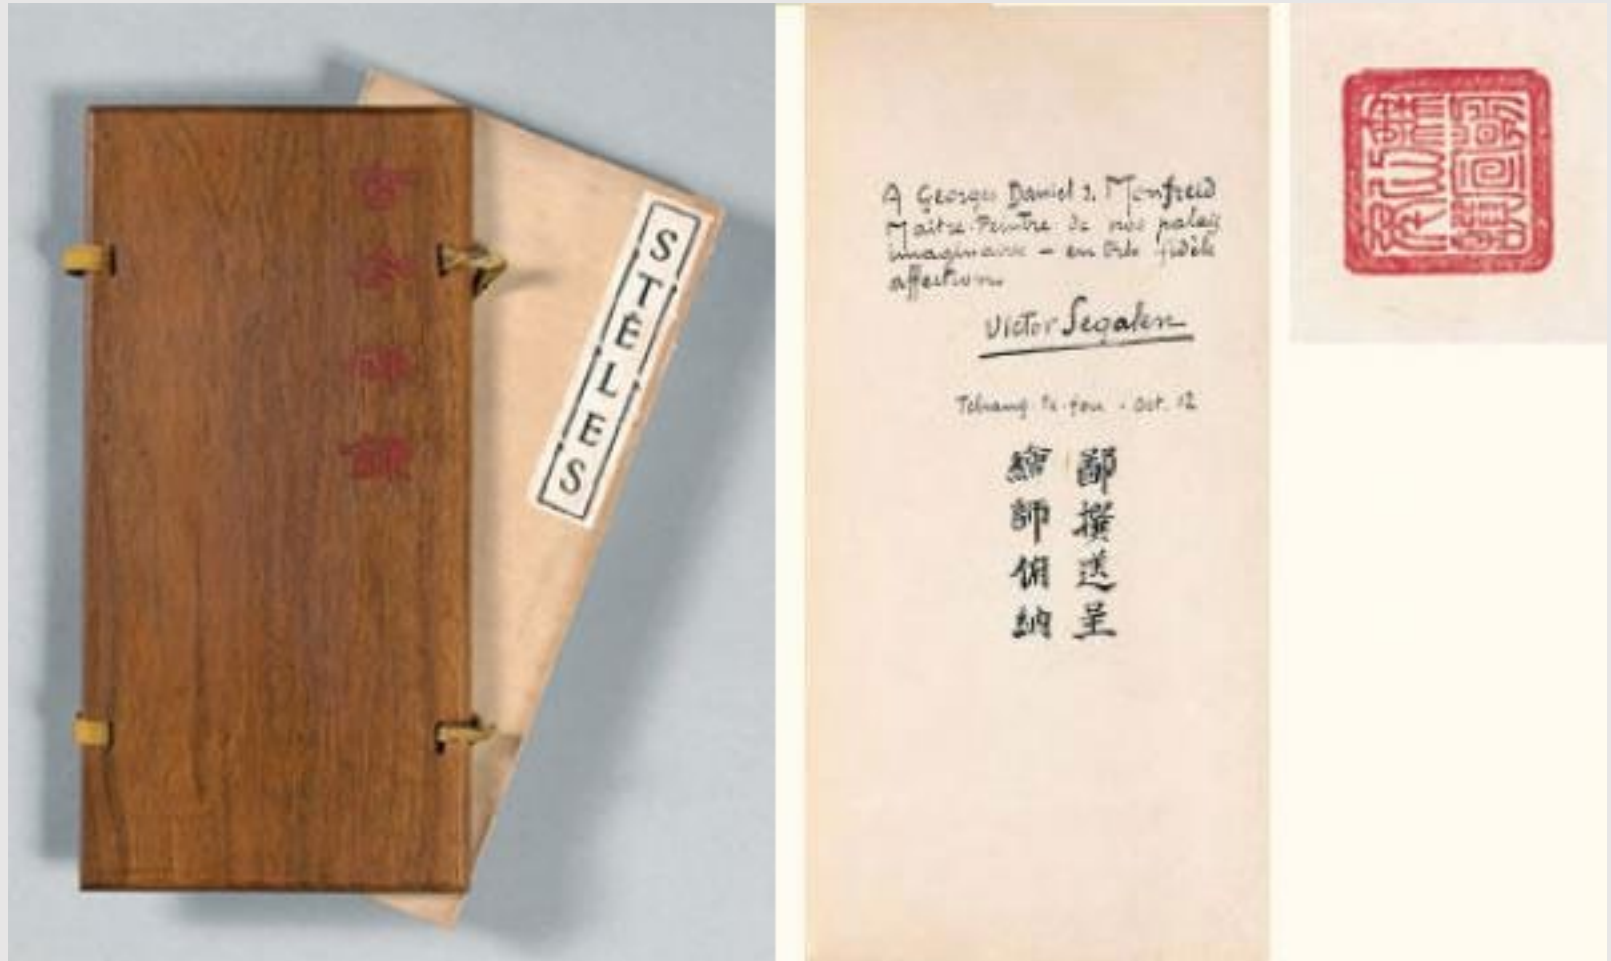 古今碑錄
STÈLES
A Georges Daniel d. Monfreid
Maître-Peintre de nos palais
imaginaires – en très fidèle
affection
Victor Segalen
Tchang-te-fou - Oct. 12
鄙撰送呈
繪師俯納